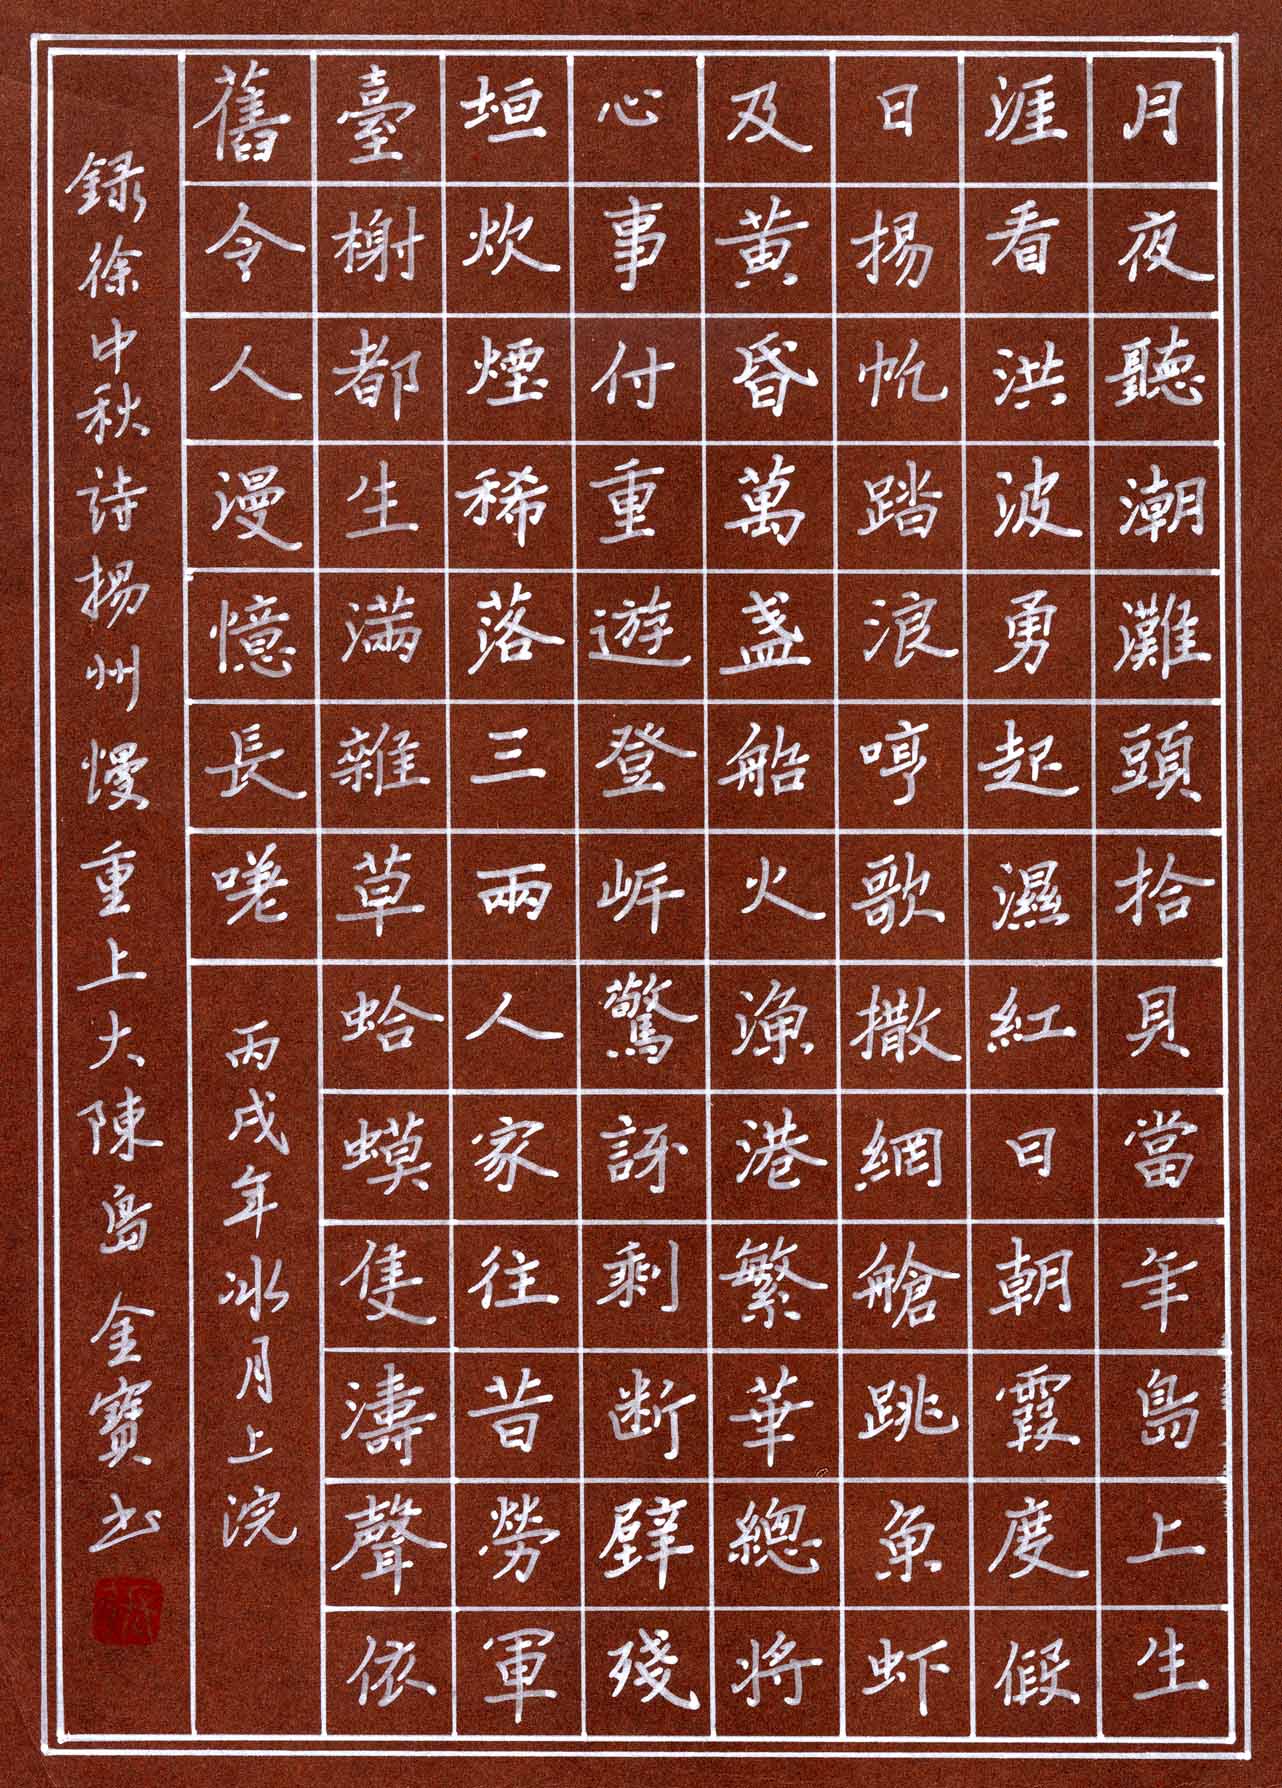 月夜聽潮灘頭拾貝當年島上生
涯看洪波勇起濕紅日朝霞度假
日揚帆踏浪哼歌撒網艙跳魚虾
及黃昏萬盏船火漁港繁華總將
心事付重遊登岍驚訝剩断壁殘
垣炊煙稀落三兩人家往昔勞軍
臺榭都生滿雜草蛤蟆隻濤聲依
舊令人漫憶長嘆
丙戌年冰月上浣
録徐中秋詩揚州慢重上大陳島 金寶书